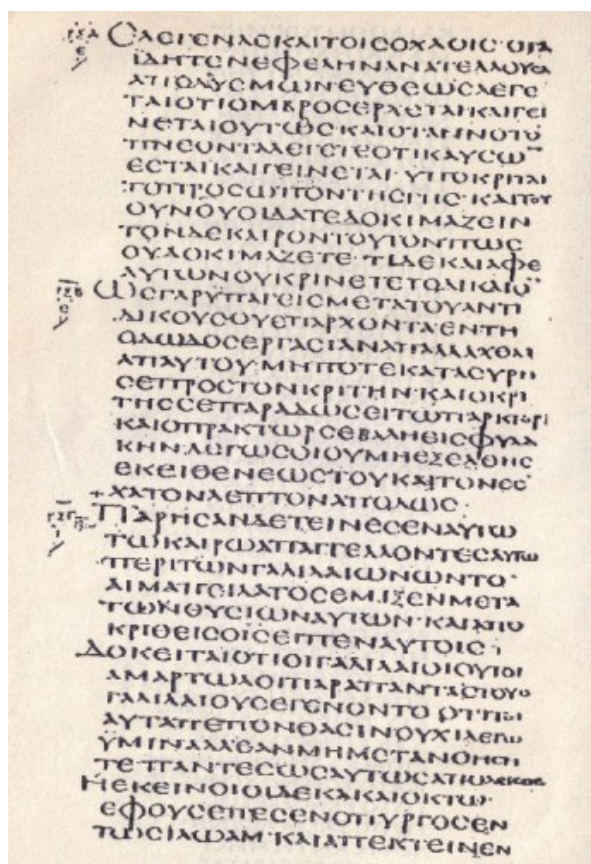 ΕΛΕΓΕΝΔΕΚΑΙΤΟΙϹΟΧΛΟΙϹ·ΟΤΑ
ΪΔΗΤΕΝΕΦΕΛΗΝΑΝΑΤΕΛΛΟΥϹΑ
ΑΠΟΔΥϹΜΩΝΕΥΘΕΩϹΛΕΓΕ
ΤΑΙΟΤΙΟΜΒΡΟϹΕΡΧΕΤΑΙ·ΚΑΙΓΕΙ
ΝΕΤΑΙΟΥΤΩϹ·ΚΑΙΟΤΑΝΝΟΤΟ
ΠΝΕΟΝΤΑΛΕΓΕΤΕΟΤΙΚΑΥϹΩ
ΕϹΤΑΙΚΑΙΓΕΙΝΕΤΑΙ·ΥΠΟΚΡΙΤΑΙ
ΤΟΠΡΟϹΩΠΟΝΤΗϹΓΗϹ·ΚΑΙΤΟΥ
ΟΥΝΟΥΟΙΔΑΤΕΔΟΚΙΜΑΖΕΙΝ
ΤΟΝΔΕΚΑΙΡΟΝΤΟΥΤΟΝΠΩϹ
ΟΥΔΟΚΙΜΑΖΕΤΕ·ΤΙΔΕΚΑΙΑΦΕ
ΑΥΤΩΝΟΥΚΡΙΝΕΤΕΤΟΔΙΚΑΙΟ
ΩϹΓΑΡΥΠΑΓΕΙϹΜΕΤΑΤΟΥΑΝΤΙ
ΔΙΚΟΥϹΟΥΕΠΑΡΧΟΝΤΑΕΝΤΗ
ΟΔΩΔΟϹΕΡΓΑϹΙΑΝΑΠΑΛΛΑΧΘΑΙ
ΑΠΑΥΤΟΥ·ΜΗΠΟΤΕΚΑΤΑϹΥΡΗ
ϹΕΠΡΟϹΤΟΝΚΡΙΤΗΝ·ΚΑΙΟΚΡΙ
ΤΗϹϹΕΠΑΡΑΔΩϹΕΙΤΩΠΡΑΚΤΟΡΙ
ΚΑΙΟΠΡΑΚΤΩΡϹΕΒΑΛΗΕΙϹΦΥΛΑ
ΚΗΝ·ΛΕΓΩϹΟΙΟΥΜΗΕΞΕΛΘΗϹ
ΕΚΕΙΘΕΝΕΩϹΤΟΥΚΑΙΤΟΝΕϹ
ΧΑΤΟΝΛΕΠΤΟΝΑΠΟΔΩϹ·
ΠΑΡΗϹΑΝΔΕΤΕΙΝΕϹΕΝΑΥΤΩ
ΤΩΚΑΙΡΩΑΠΑΓΓΕΛΛΟΝΤΕϹΑΥΤΩ
ΠΕΡΙΤΩΝΓΑΛΙΛΑΙΩΝΩΝΤΟ
ΑΙΜΑΠΕΙΛΑΤΟϹΕΜΙΞΕΝΜΕΤΑ
ΤΩΝΘΥϹΙΩΝΑΥΤΩΝ·ΚΑΙΑΠΟ
ΚΡΙΘΕΙϹΟΙϹΕΙΠΕΝΑΥΤΟΙϹ·
ΔΟΚΕΙΤΑΙΟΤΙΟΙΓΑΛΙΛΑΙΟΙΟΥΤΟΙ
ΑΜΑΡΤΩΛΟΙΠΑΡΑΠΑΝΤΑϹΤΟΥϹ
ΓΑΛΙΛΑΙΟΥϹΕΓΕΝΟΝΤΟ·ΟΤΙΤΟΙ
ΑΥΤΑΠΕΠΟΝΘΑϹΙΝΟΥΧΙΛΕΓΩ
ΥΜΙΝΑΛΛΕΑΝΜΗΜΕΤΑΝΟΗϹΗ
ΤΕΠΑΝΤΕϹΩϹΑΥΤΩϹΑΠΟΛΕΙϹΘΕ
ΗΕΚΕΙΝΟΙΟΙΔΕΚΑΚΑΙΟΚΤΩ·
ΕΦΟΥϹΕΠΕϹΕΝΟΠΥΡΓΟϹΕΝ
ΤΩϹΙΛΩΑΜ·ΚΑΙΑΠΕΚΤΕΙΝΕΝ